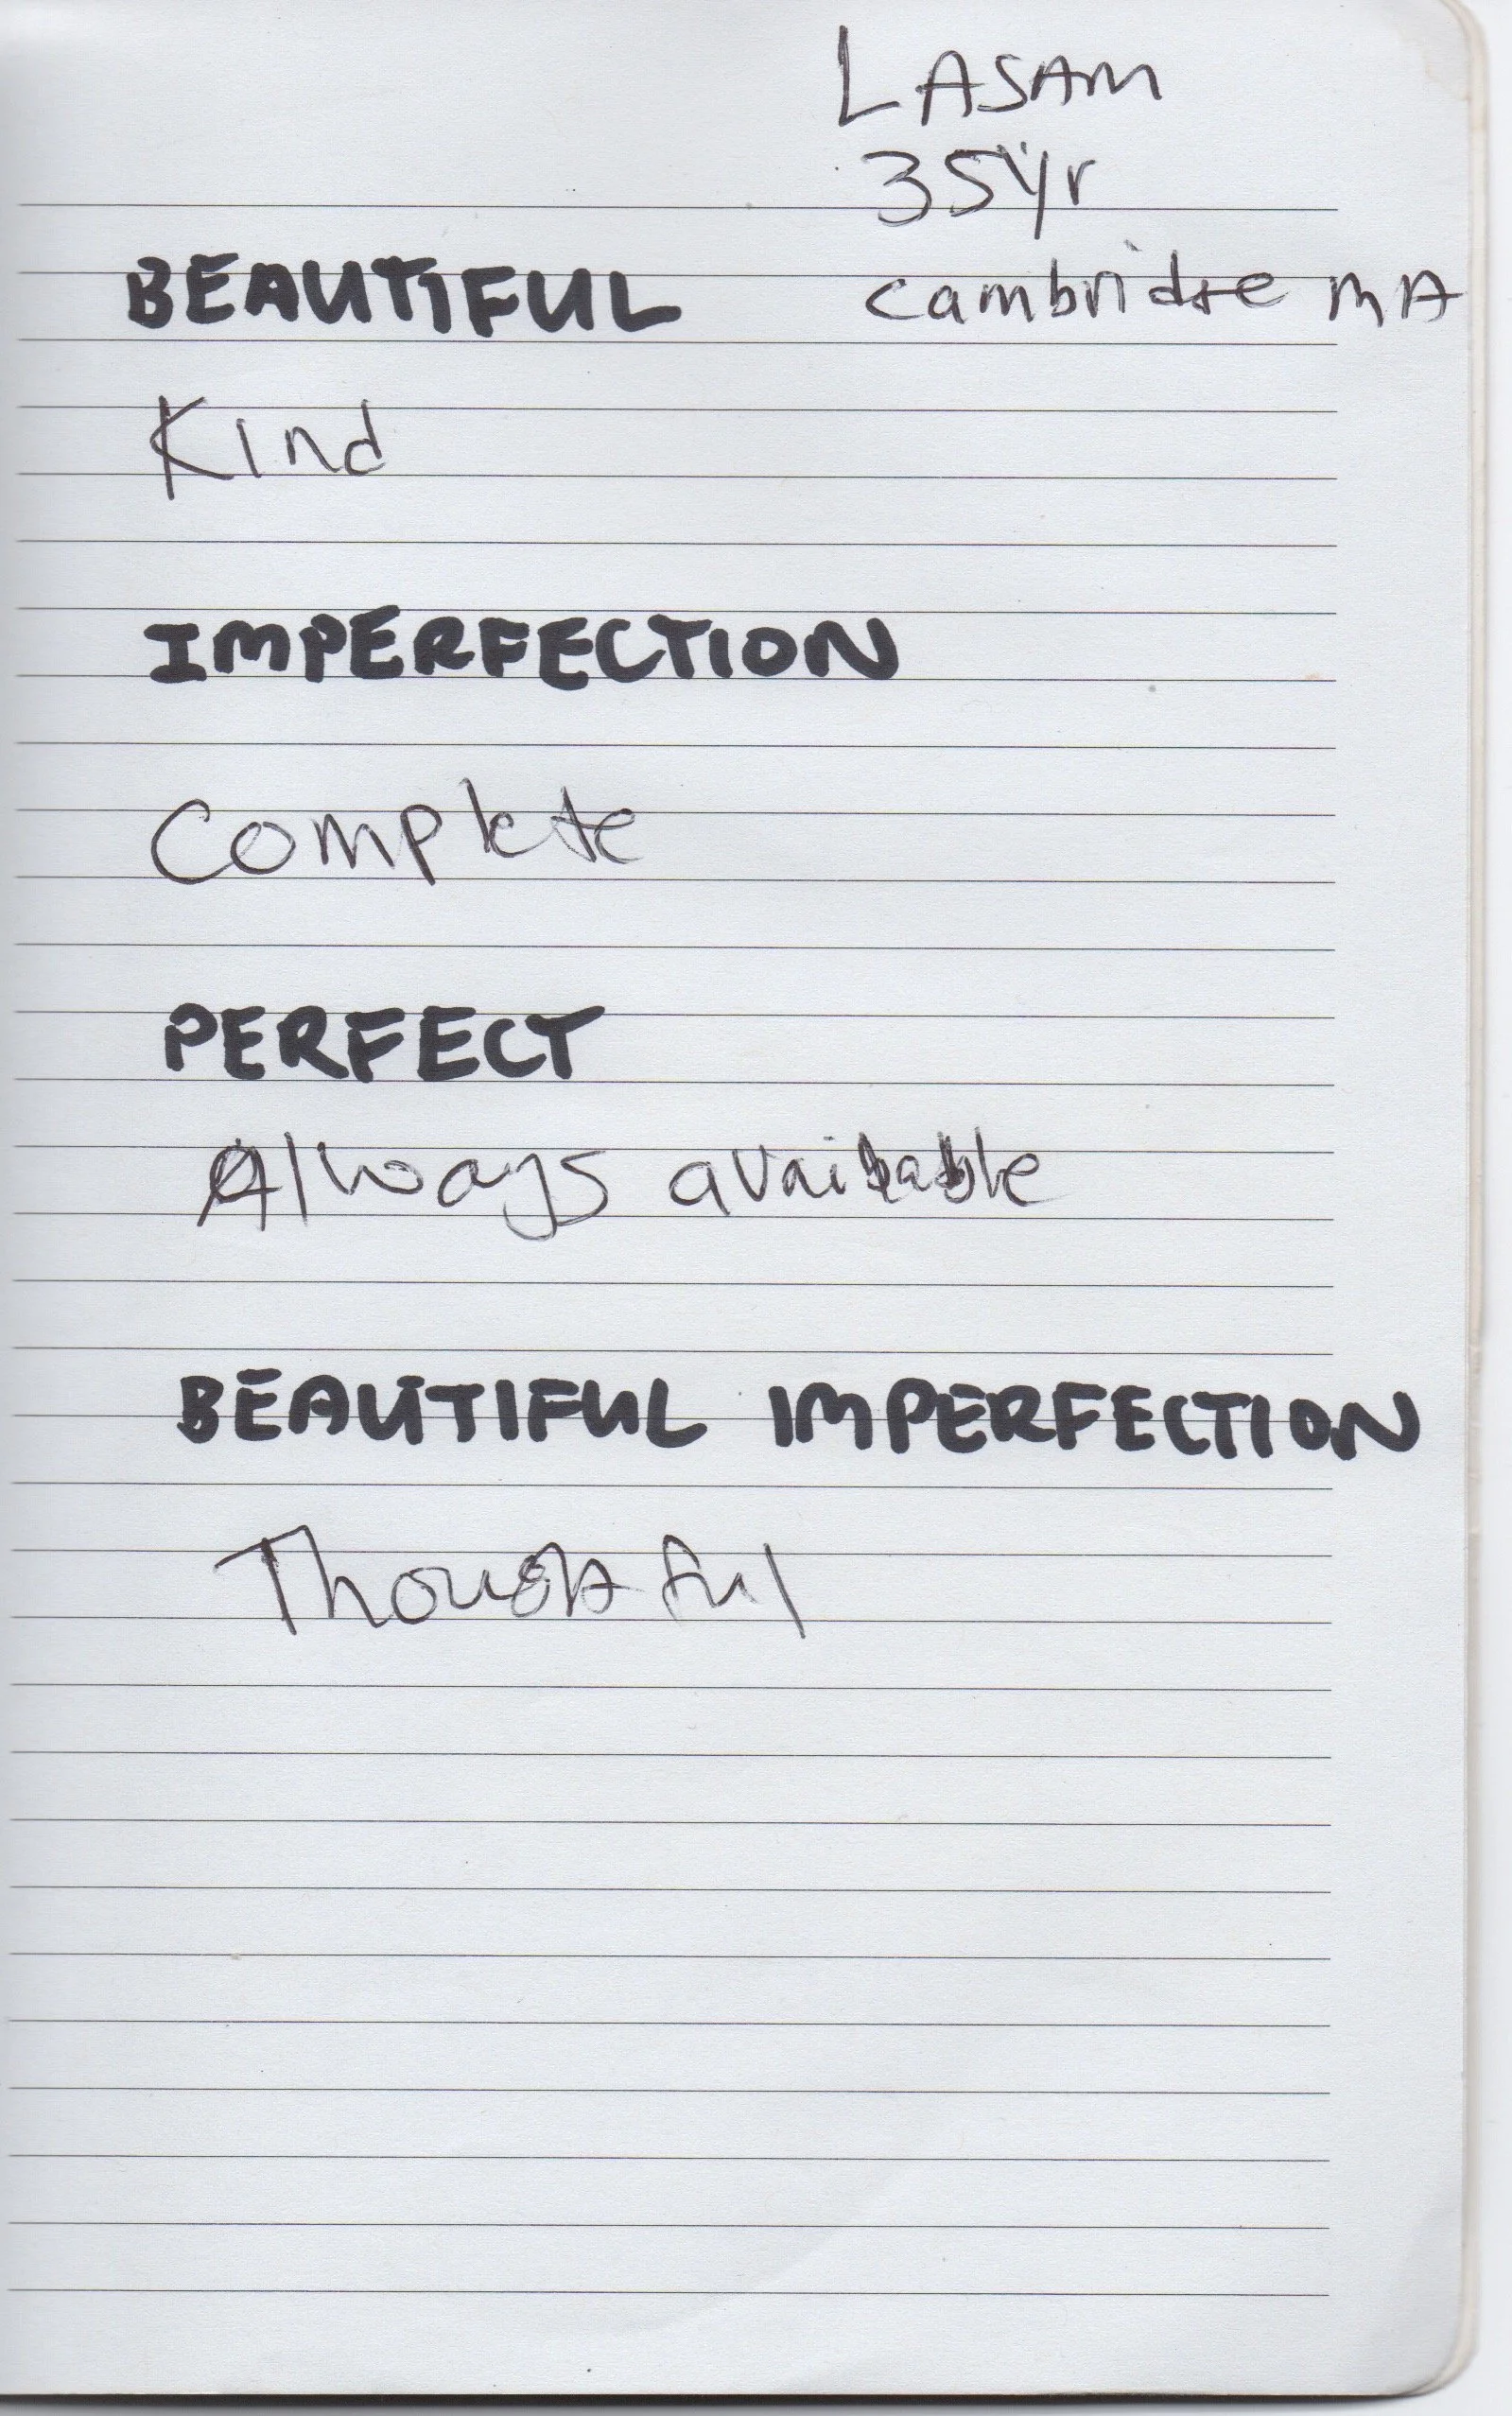 LASAM
35yr
BEAUTIFUL
Cambridge MA
Kind
IMPERFECTION
Complete
PERFECT
Always available
BEAUTIFUL IMPERFECTION
Thoughtful